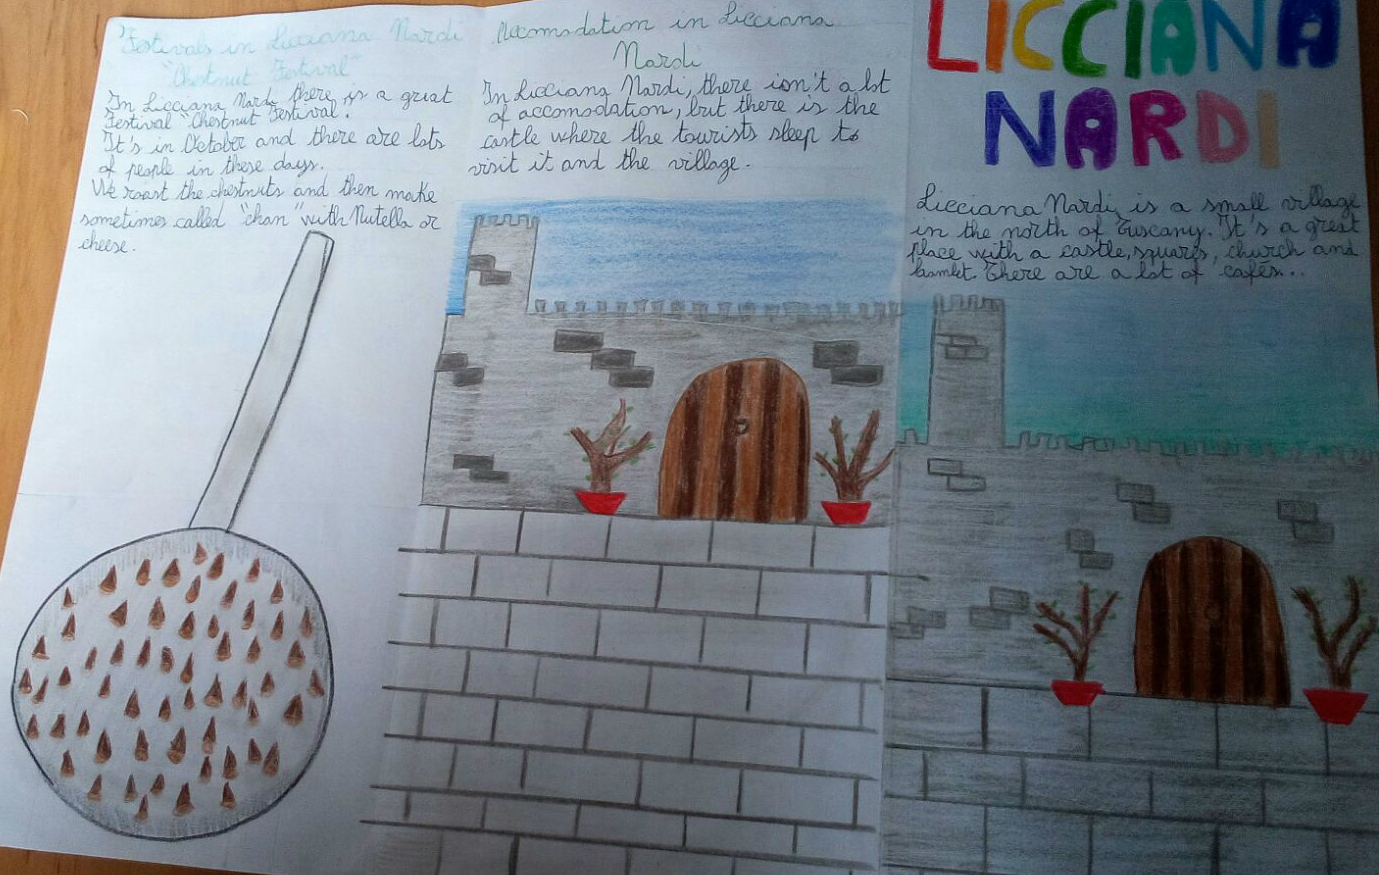 Festivals in Licciana Nardi
"Chestnut Festival"
In Licciana Nardi there is a great
Festival "Chestnut Festival".
It's in October and there are lots
of people in these days.
We roast the chestnuts and then make
sometimes called "chan" with Nutella or
cheese.
Accomodation in Licciana
Nardi
In Licciana Nardi, there isn't a lot
of accomodation, but there is the
castle where the tourists sleep to
visit it and the village.
LICCIANA
NARDI
Licciana Nardi, is a small village
in the north of Tuscany. It's a great
place with a castle, squares, church and
hamlet. There are a lot of cafés...